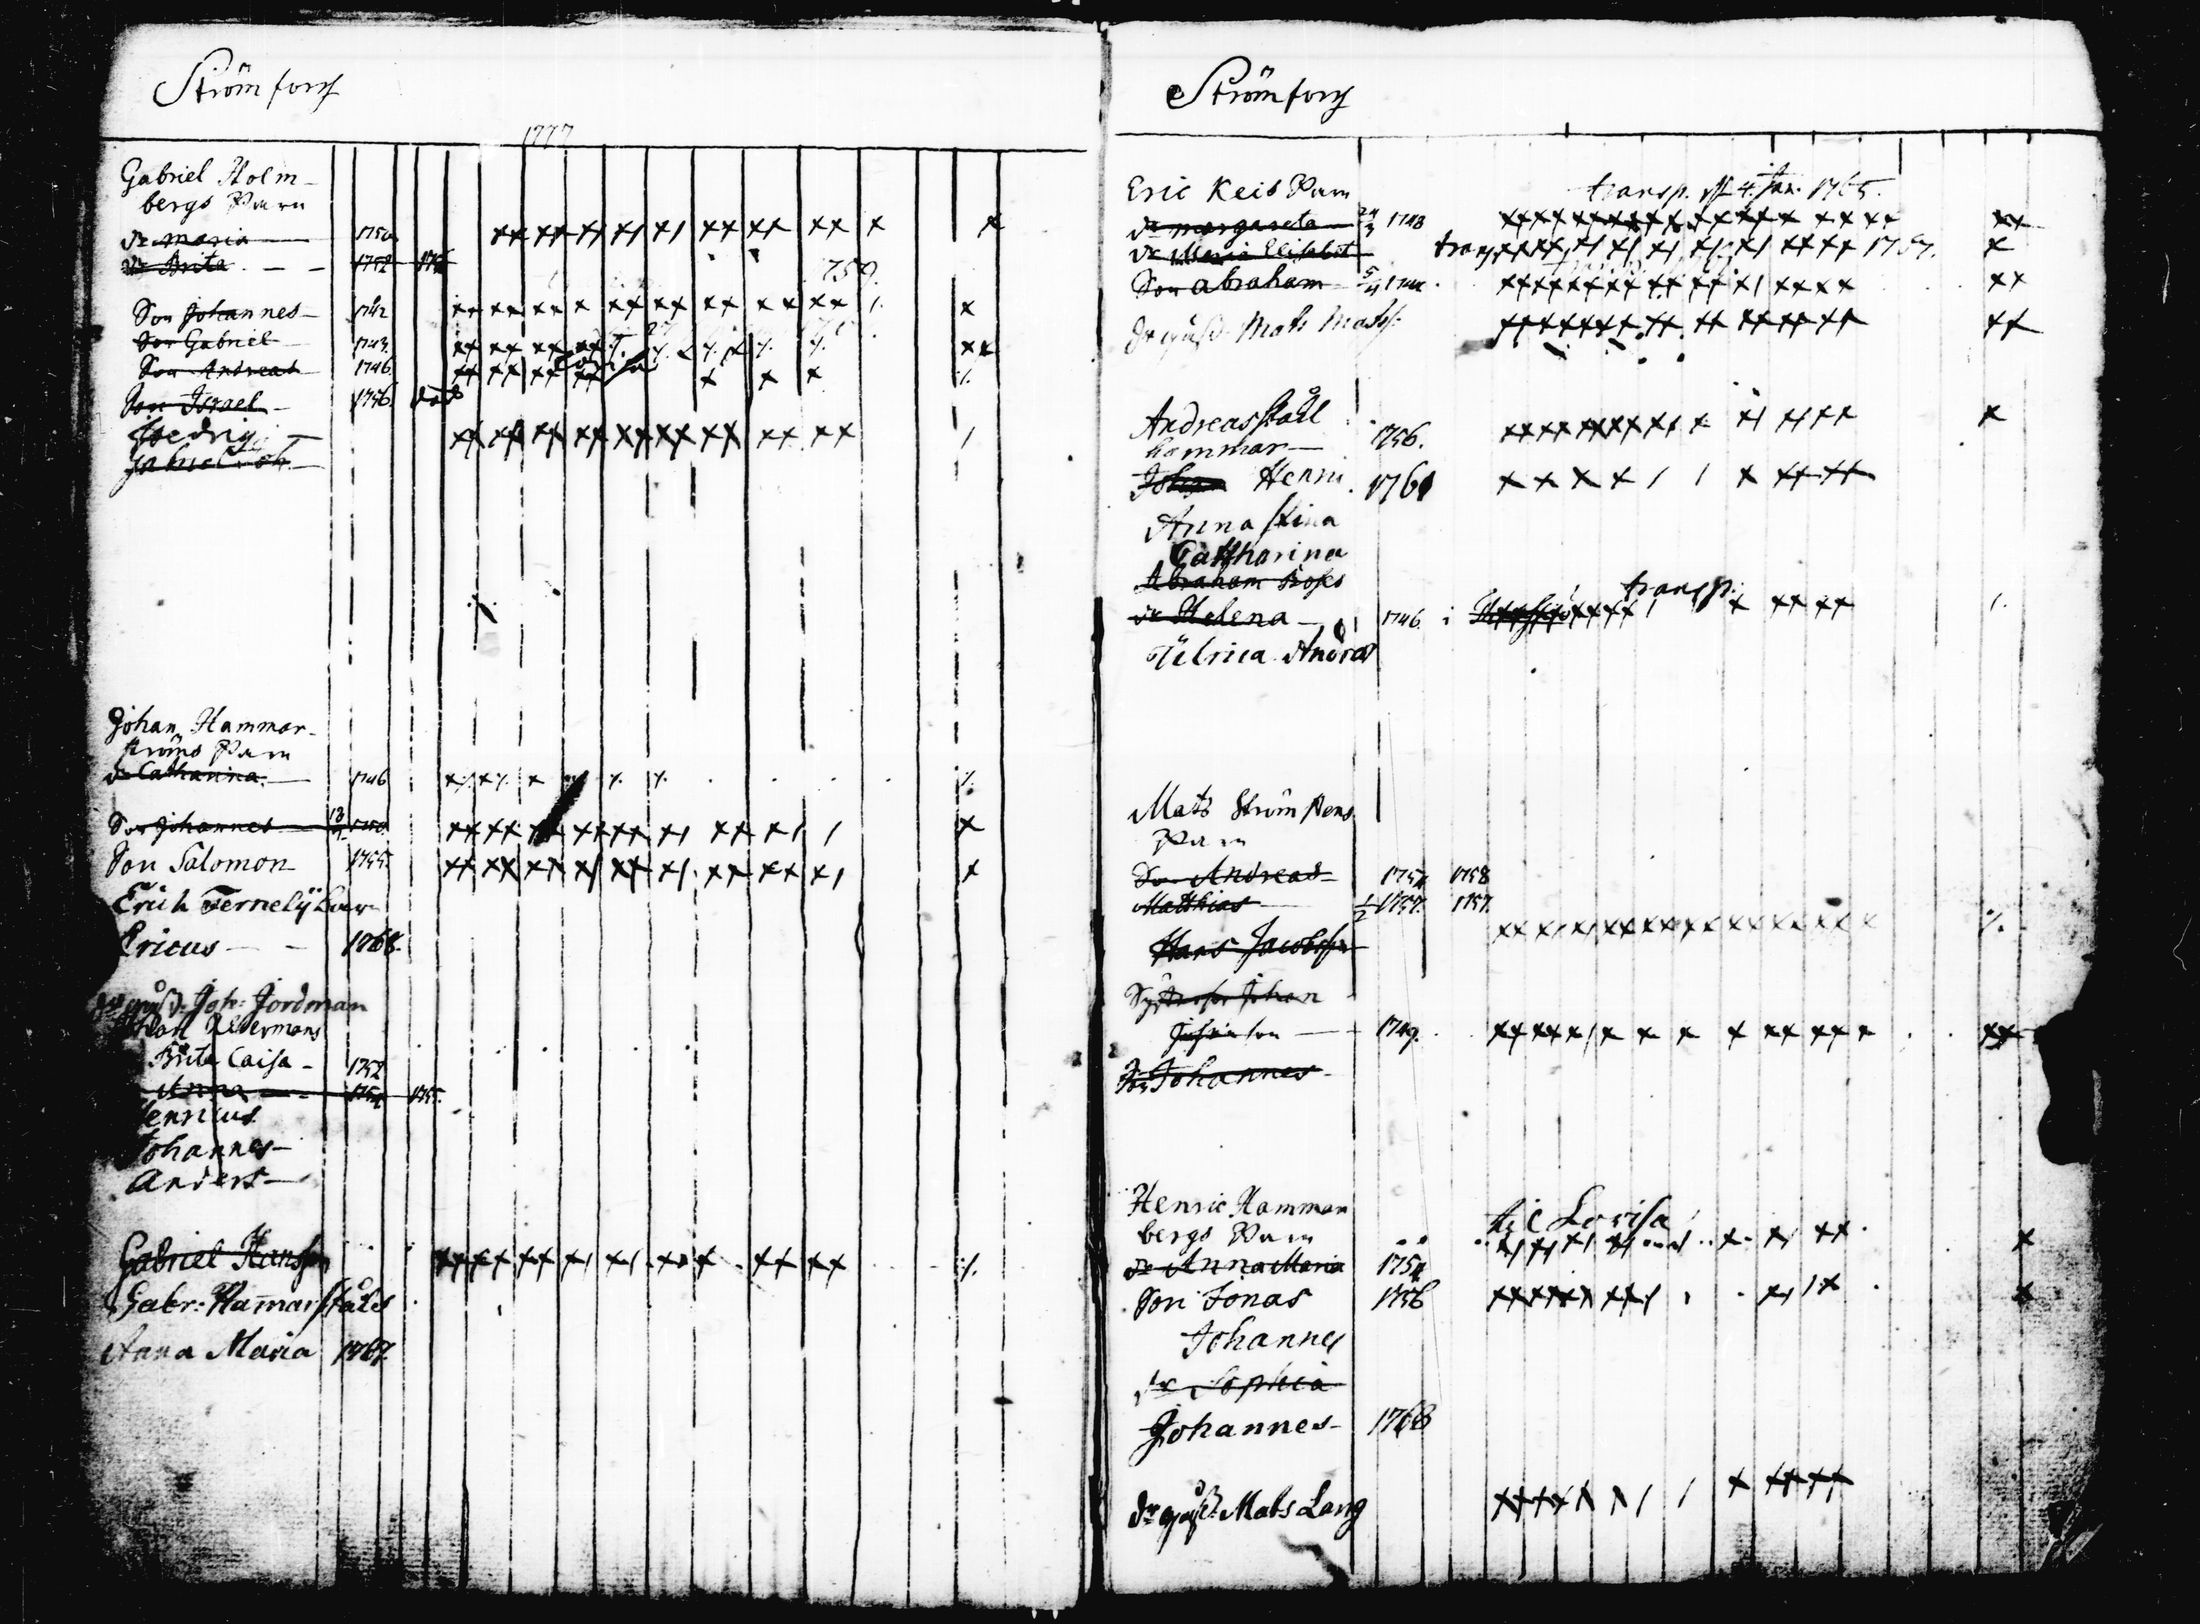 Strömfors
1777
Gabriel Holm-
bergs Barn
dr Maria 1750
dr Brita 1752
759.
Son Johannes 1742
Son Gabriel 1743
Son Andreas 1746
Lovisa
Son Israel 1756. död
Hedvig
Johan Hammar-
ströms Barn
dr Catharina 1746
Son Johannes
Son Salomon 1755
Erich
Ericus 1768.
dr gåss. Joh: Jordman
Brita Caisa 1752
Anna 1754 1755.
Henricus
Johannes
Anders
Gabriel Hansson
Gabr: Hamarståls
Anna Maria 1767.
Strömfors
Eric Keis Barn
transp. d. 4. Jan. 1765.
dr Margareta 24/3 1743
dr Maria Elisabet transp. 1757.
Son Abraham
dr gåss. Mats Matss:
Andreas stål
hammar 1756.
Johan Henric 1761
Anna Stina
Catharina
Abraham
transp.
dr Helena 1746. i
Ulrica
Mats Strömstens
Barn
Son Andreas 1754 1758
Matthias 1/2 1757. 1757.
Hans Jacobsson
Systerson Johan
Johansson 1749.
Son Johannes
Henric Hammar
bergs Barn
til Lovisa
dr Anna Maria 1754
Son Jonas 1756
Johannes
dr Sophia
Johannes 1768
dr gåss. Mats Lang